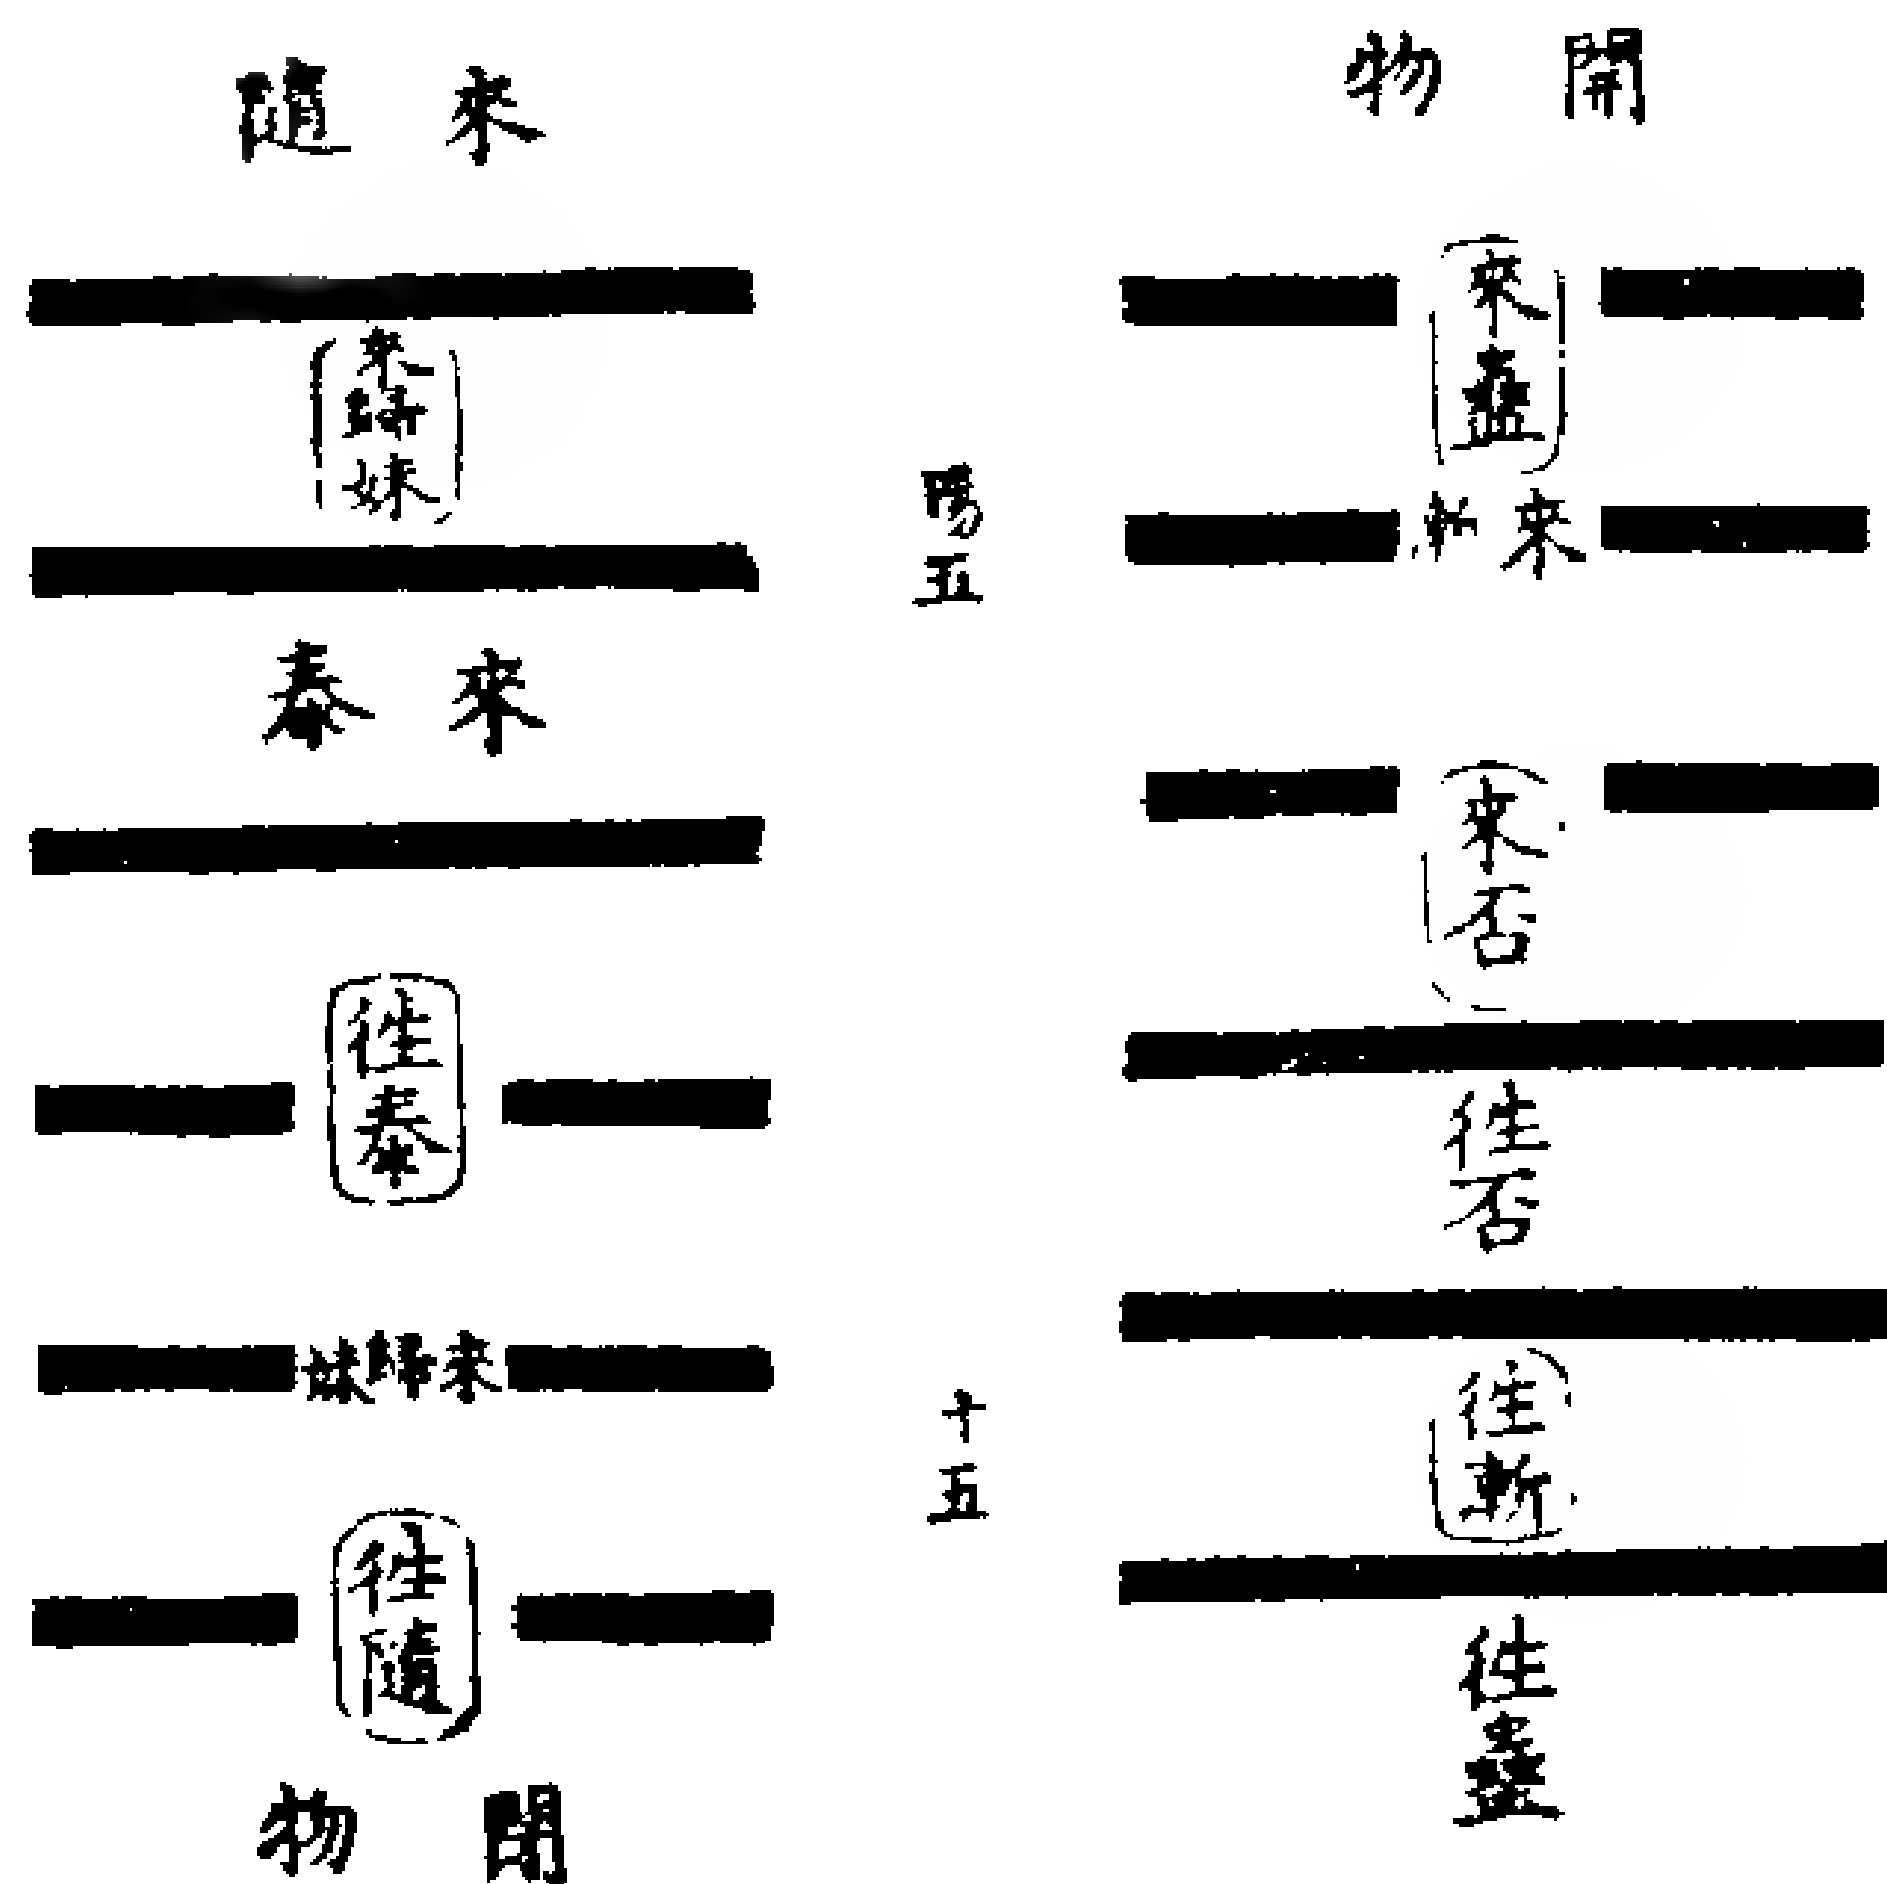 開物
來蠱
來漸
來否
往否
往漸
往蠱
陽五
十五
來隨
來歸妹
來泰
往泰
來歸妹
往隨
閉物